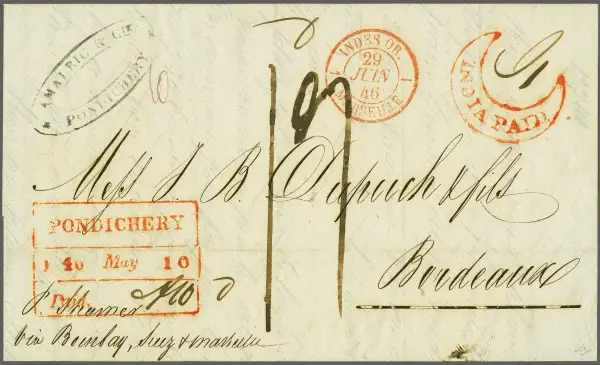 AMALRIC & Cie
PONDICHERY
INDES OR.
29
JUIN
46
MARSEILLE
INDIA PAID.
Mess J. B. Dupuch & fils
Bordeaux
PONDICHERY
46 May 10
Pd.
P. Steamer
via Bombay, Suez & Marseille